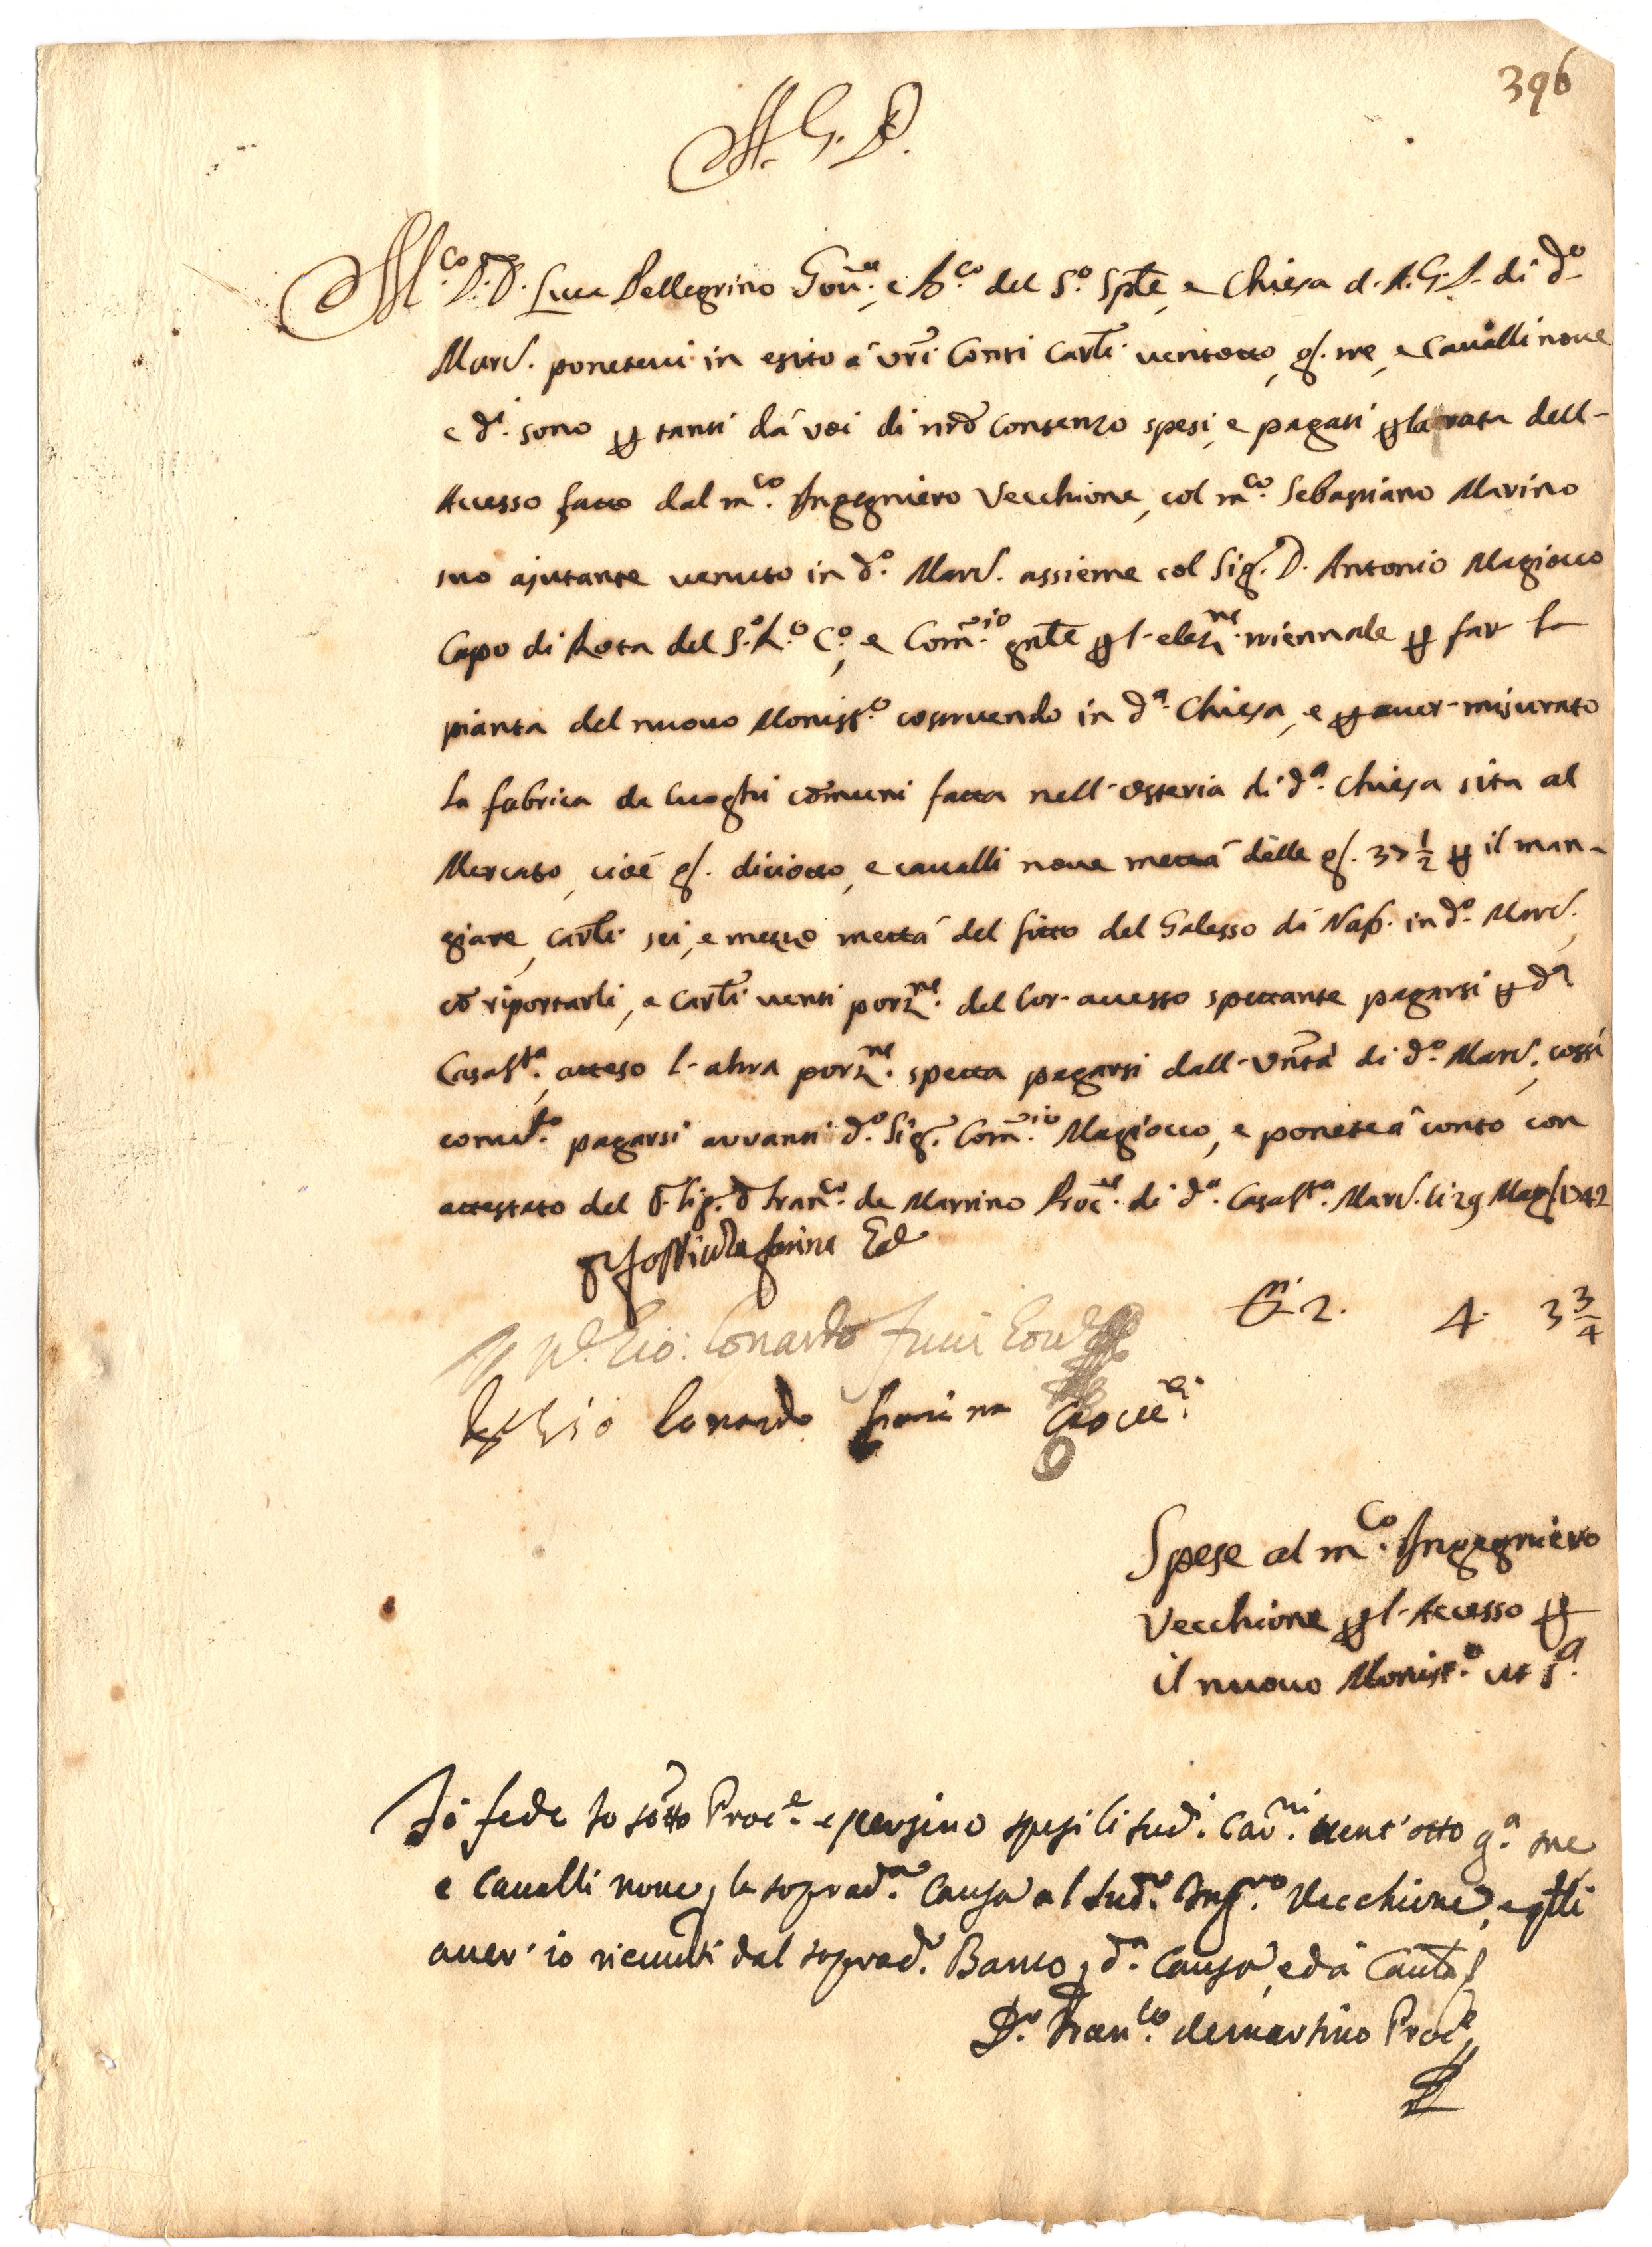 396
A. G. P.
M.co D. D. Luca Pellegrino Gov.re, e B.co del S.o Sple, e Chiesa d. A. G. P. di d.o
Mard. ponetevi in esito à vri Conti Carli ventotto, g. tre, e Cavalli nove
e d.i sono p tanti dà voi di nro Consenzo spesi, e pagati p la rata dell-
Accesso fatto dal m.co Ingegniero Vecchione, col m.co Sebastiano Marino
suo ajutante venuto in d.o Mard. assieme col Sig. D. Antonio Magiocco
Capo di Rota del S. R. C., e Com.rio gnle p l-elez.ne triennale p far la
pianta del nuovo Monist.o costruendo in d.a Chiesa, e p aver-misurato
la fabrica de luoghi comuni fatta nell-osteria di d.a Chiesa sita al
Mercato, cioè g. diciotto, e cavalli nove mettà delle g. 37 1/2 p il man-
giare, carli sei, e mezzo mettà del fitto del Galesso da Nap. in d.o Mard.,
cō riportarli, e Carli venti porz.ne del lor-accesso spettante pagarsi p d.a
Casas.ta, atteso l-altra porz.ne spetta pagarsi dall-Unità di d.o Mard., cossì
conv.to pagarsi avvanti d.o Sig. Com.rio Magiocco, e ponete à conto con
attestato del Sig. D. Fran.co de Martino Proc.re di d.a Casas.ta Mard. li 29 Mag. 1742
farina
Gio: Lonardo
D. 2. 4. 3 3/4
Gio Lonardo
Spese al m.co Ingegniero
Vecchione p l-Accesso p
il nuovo Monist.o ut s.a
Fò fede Io sotto Proc.e essersino spesi li sud.i Car.ni vent'otto g.a tre
e Cavalli nove p la soprad.a Causa al sud.o Ing.ro Vecchione, e qlli
aver'io ricevuti dal soprad.o Banco p d.a Causa, ed à Cautela
D. Fran.co de Martino Proc.e